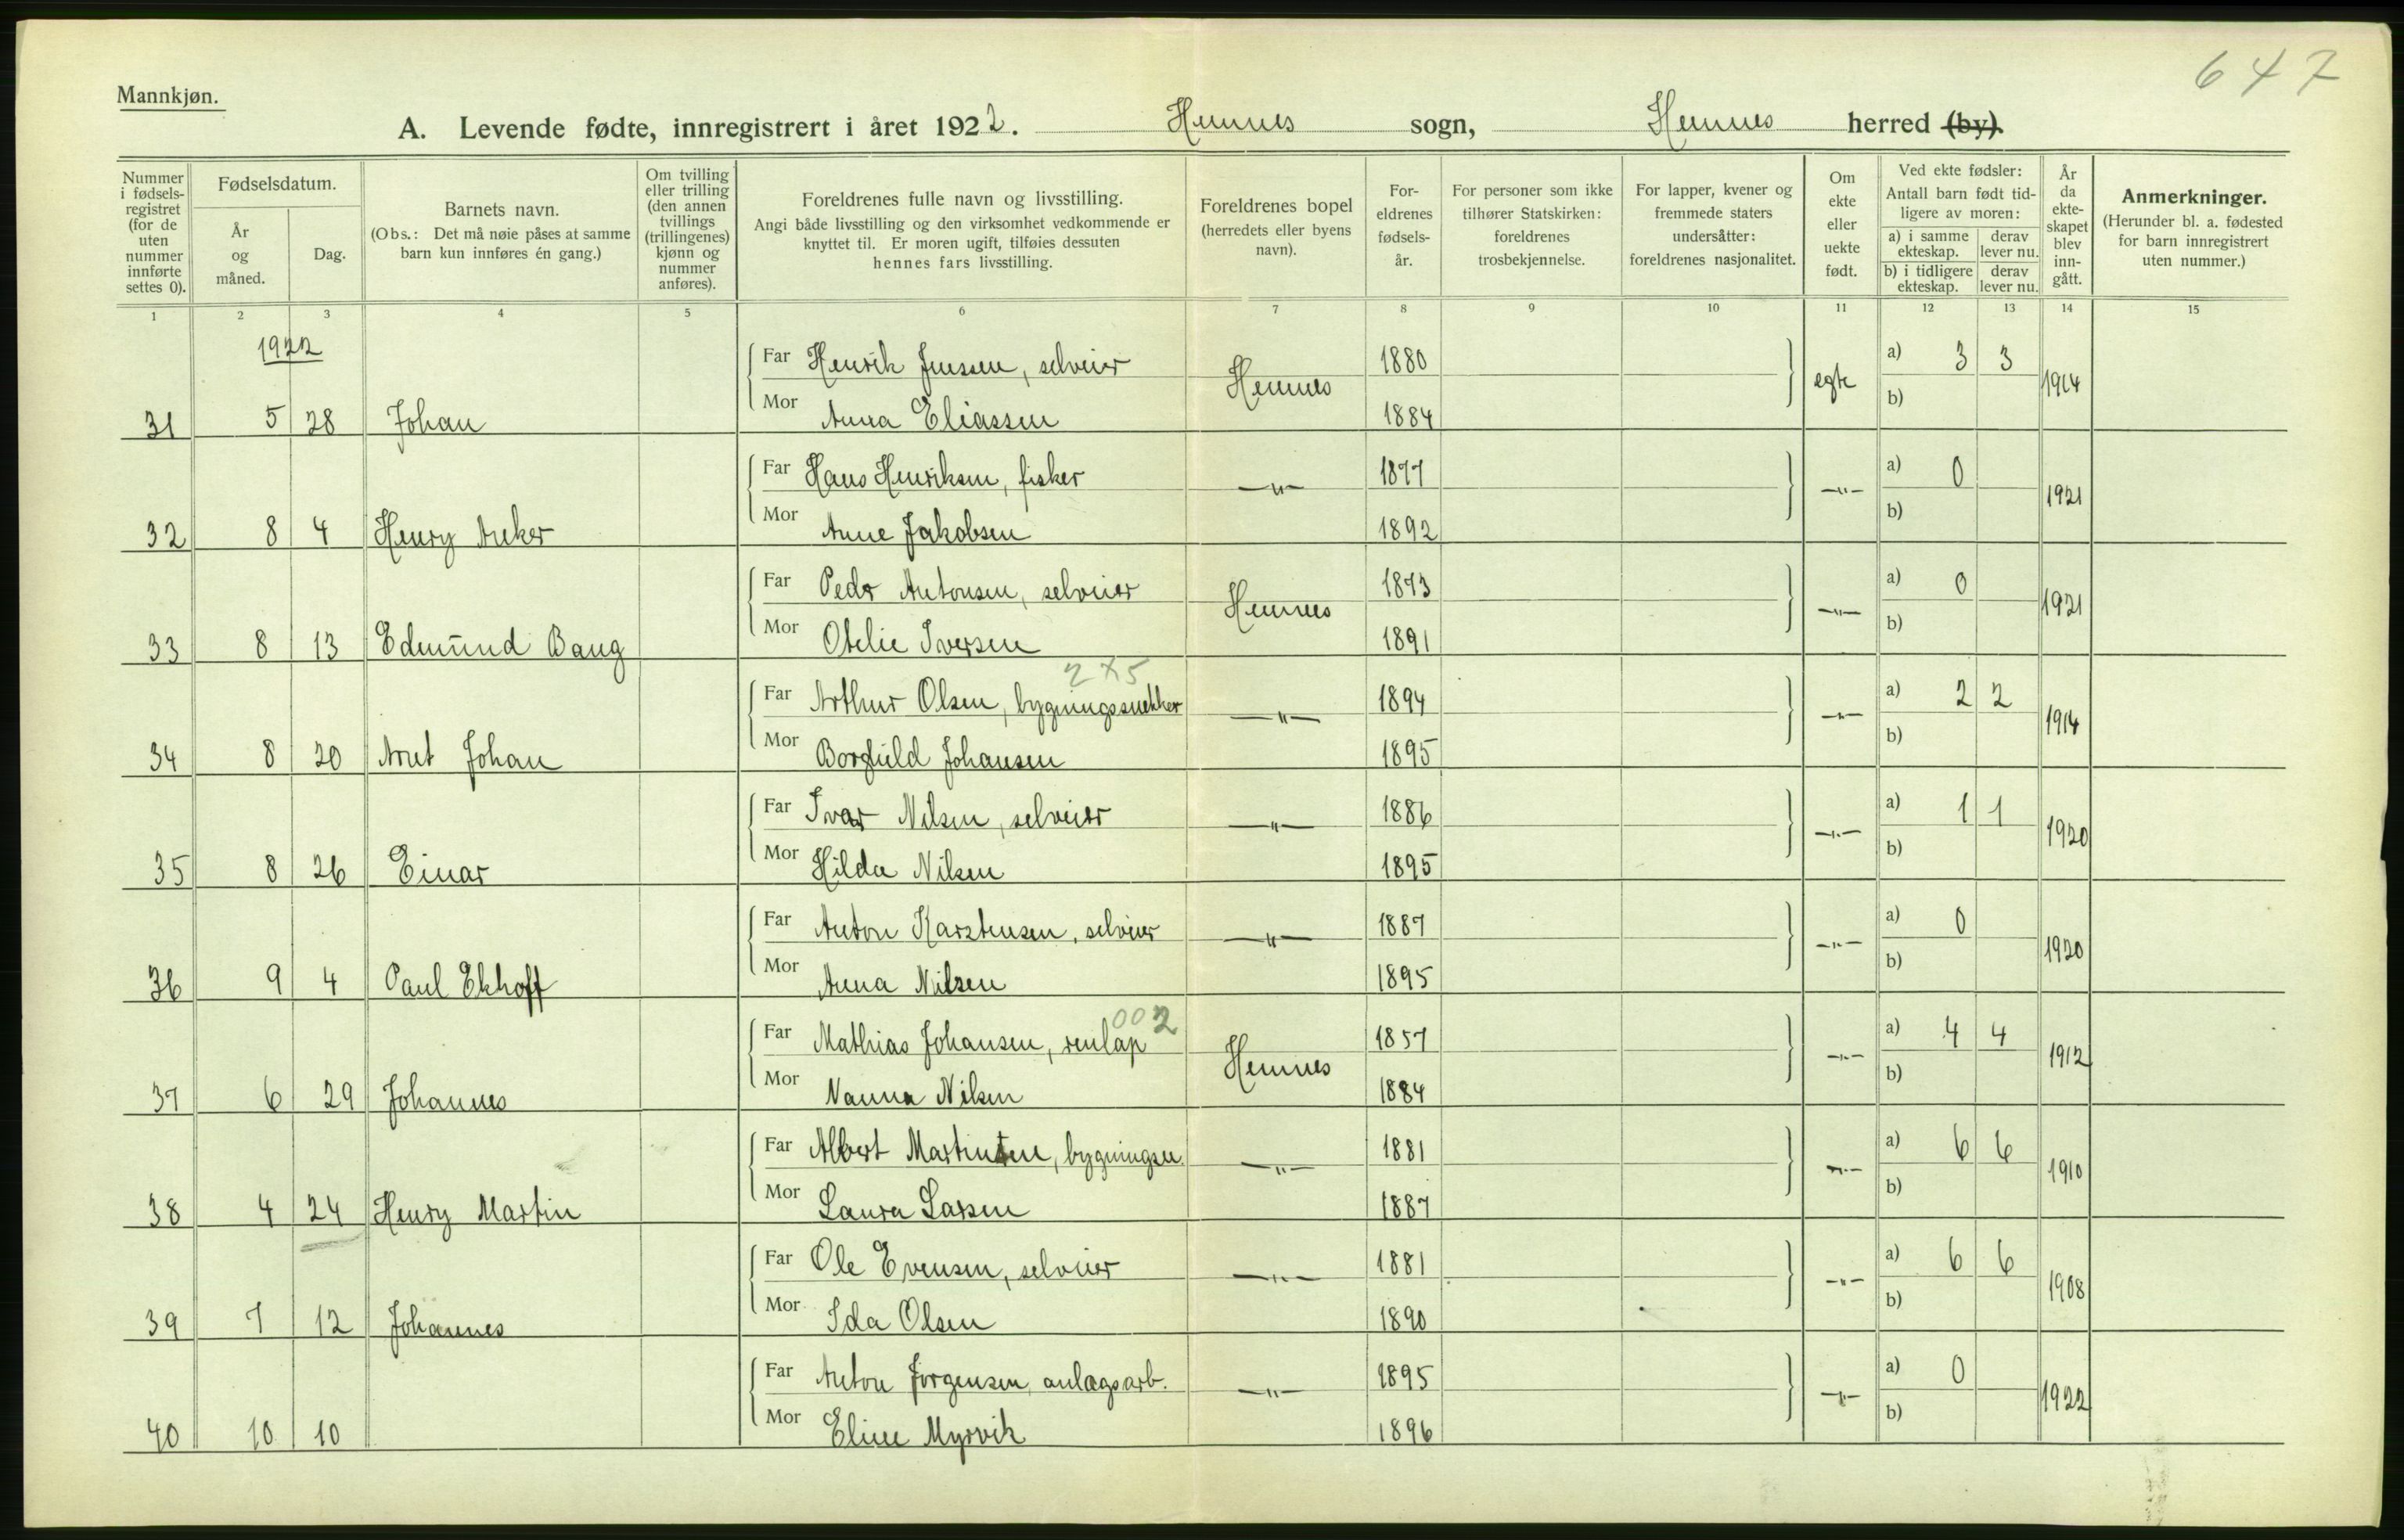 647
Mannkjøn.
A. Levende fødte, innregistrert i året 1922. Hemnes sogn, Hemnes herred (by).
Nummer i fødsels-registret (for de uten nummer innførte settes 0).
Fødselsdatum.
År og måned.
Dag.
Barnets navn.
(Obs.: Det må nøie påses at samme barn kun innføres én gang.)
Om tvilling eller trilling (den annen tvillings (trillingenes) kjønn og nummer anføres).
Foreldrenes fulle navn og livsstilling.
Angi både livsstilling og den virksomhet vedkommende er knyttet til. Er moren ugift, tilføies dessuten hennes fars livsstilling.
Foreldrenes bopel (herredets eller byens navn).
For-eldrenes fødsels-år.
For personer som ikke tilhører Statskirken: foreldrenes trosbekjennelse.
For lapper, kvener og fremmede staters undersåtter: foreldrenes nasjonalitet.
Om ekte eller uekte født.
Ved ekte fødsler: Antall barn født tid-ligere av moren:
a) i samme ekteskap.
derav lever nu.
b) i tidligere ekteskap.
derav lever nu.
År da ekte-skapet blev inn-gått.
Anmerkninger.
(Herunder bl. a. fødested for barn innregistrert uten nummer.)
1 2 3 4 5 6 7 8 9 10 11 12 13 14 15
1922
Far Henrik Jenssen, selveier Hemnes 1880 egte a) 3 3 1914
31 5 28 Johan Mor Anna Eliassen 1884 b)
Far Hans Henriksen, fisker —"— 1877 —"— a) 0 1921
32 8 4 Henry Anker Mor Anne Jakobsen 1892 b)
Far Peder Antonsen, selveier Hemnes 1873 —"— a) 0 1921
33 8 13 Edmund Baug Mor Otelie Iversen 1891 b)
2x5
Far Arthur Olsen, bygningssnekker —"— 1894 —"— a) 2 2 1914
34 8 20 Arnt Johan Mor Borghild Johansen 1895 b)
Far Ivar Nilsen, selveier —"— 1886 —"— a) 1 1 1920
35 8 26 Einar Mor Hilda Nilsen 1895 b)
Far Anton Karstensen, selveier —"— 1887 —"— a) 0 1920
36 9 4 Paul Ekhoff Mor Anna Nilsen 1895 b)
002
Far Mathias Johansen, renlap Hemnes 1857 —"— a) 4 4 1912
37 6 29 Johannes Mor Nanna Nilsen 1884 b)
Far Albert Martinsen, bygningsn. —"— 1881 —"— a) 6 6 1910
38 4 24 Henry Martin Mor Laura Larsen 1887 b)
Far Ole Evensen, selveier —"— 1881 —"— a) 6 6 1908
39 7 12 Johannes Mor Ida Olsen 1890 b)
Far Anton Jørgensen, anlægsarb. —"— 1895 —"— a) 0 1922
40 10 10 Mor Eline Myrvik 1896 b)